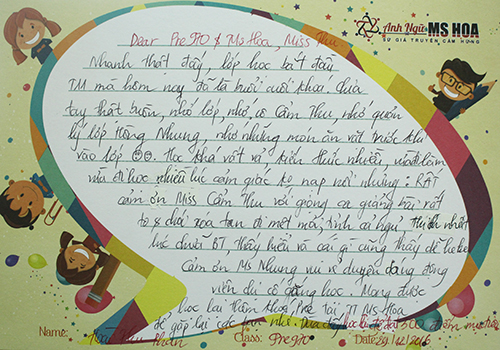 Anh Ngữ MS HOA
SỨ GIẢ TRUYỀN CẢM HỨNG
Dear Pre 970 & Ms Hoa, Miss Thu
Nhanh thật đấy, lớp học bắt đầu
mà hôm nay đã là buổi cuối khóa. Chia
tay thật buồn, nhớ lớp, nhớ cô Cẩm Thu, nhớ quản
lý lớp Hồng Nhung, nhớ những món ăn vặt trước khi
vào lớp ☺☺. Học khá vất vả, kiến thức nhiều, vừa đi làm
vừa đi học nhiều lúc cảm giác ko nạp nổi nhưng: RẤT
cảm ơn Miss Cẩm Thu với giọng ca giảng bài rất
to & dài xóa tan đi mệt mỏi, tỉnh cả ngủ. Thích nhất
lúc dưới BT, thấy hiểu và cái gì cũng thấy dễ
Cảm ơn Ms Nhung vui vẻ duyên dáng động
viên chị cố gắng học. Mong được
học lại thêm khóa Pre tại TT Ms Hoa
để gặp lại các bạn nhé. 500 điểm
Name: Thu
Class: Pre 970
Date: 29/12/2016